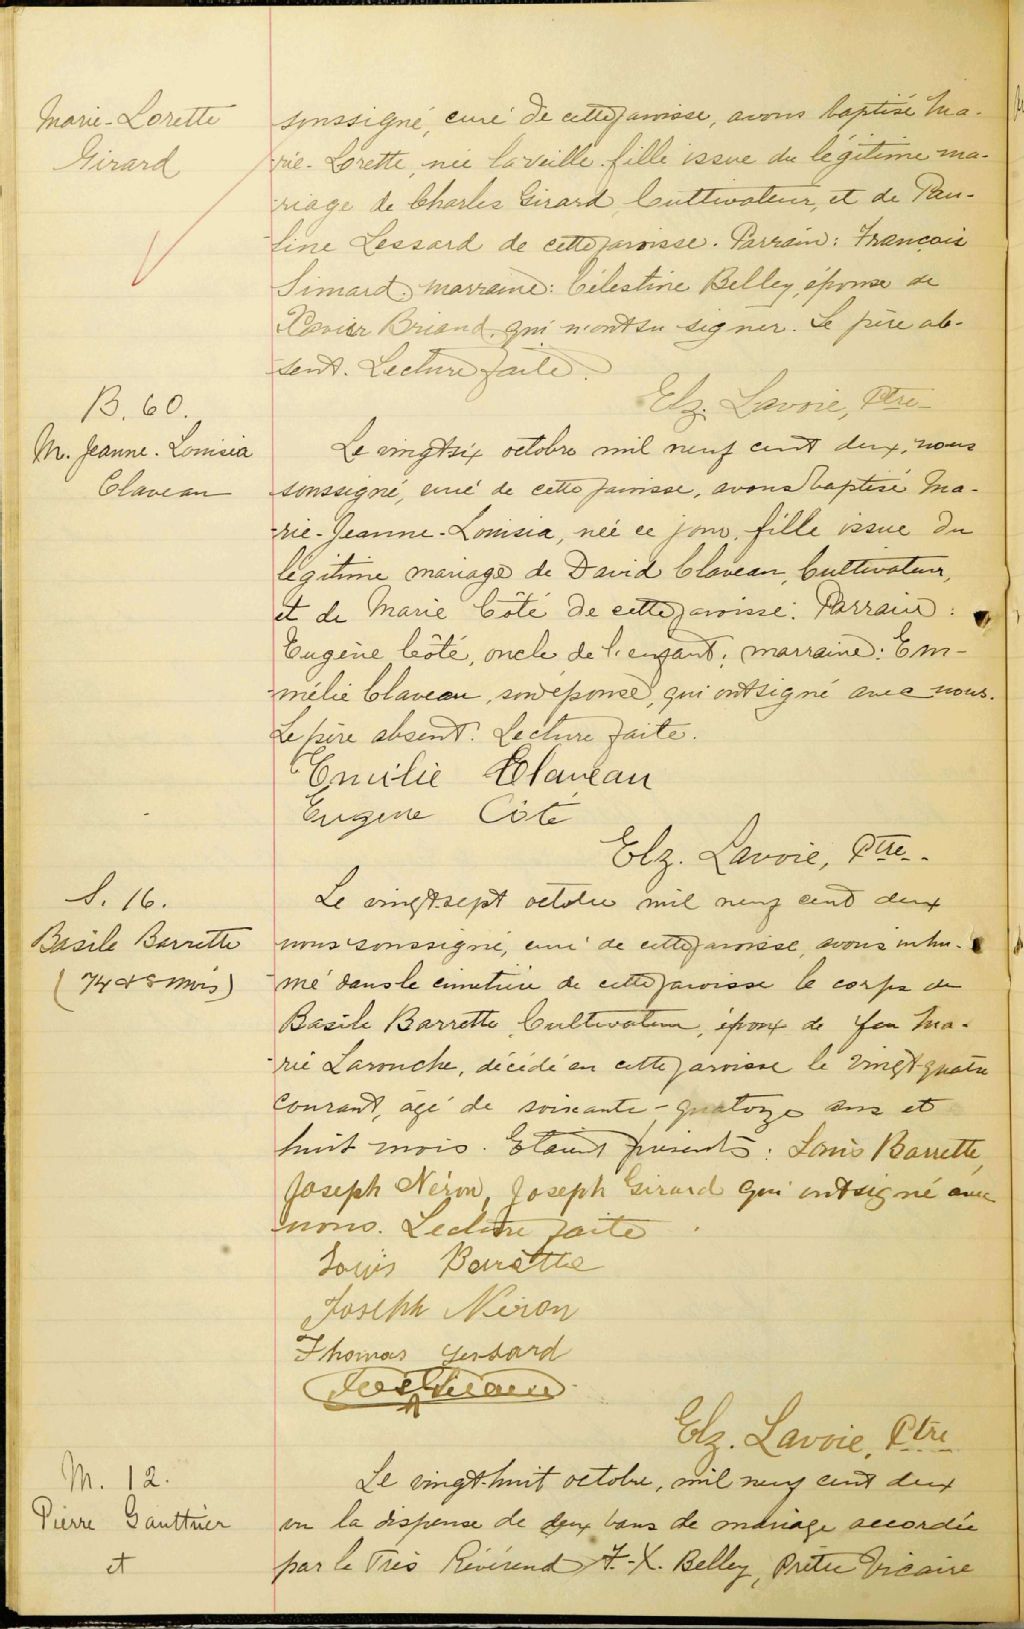 Marie-Lorette
Girard
soussigné, curé de cette paroisse, avons baptisé Ma-
-rie-Lorette, née la veille, fille issue du légitime ma-
-riage de Charles Girard, Cultivateur, et de Pau-
-line Lessard de cette paroisse. Parrain: François
Simard; marraine: Célestine Belley, épouse de
Xavier Briand, qui n'ont su signer. Le père ab-
-sent. Lecture faite.
Elz. Lavoie, Ptre
B. 60.
M. Jeanne-Louisia
Claveau
Le vingt-six octobre mil neuf cent deux, nous
soussigné, curé de cette paroisse, avons baptisé Ma-
-rie-Jeanne-Louisia, née ce jour, fille issue du
légitime mariage de David Claveau, Cultivateur,
et de Marie Côté de cette paroisse. Parrain:
Eugène Côté, oncle de l'enfant; marraine: Em-
-mélie Claveau, son épouse, qui ont signé avec nous.
Le père absent. Lecture faite.
Emilie Claveau
Eugene Côté
Elz. Lavoie, Ptre.
S. 16.
Basile Barrette
(74 & 8 mois)
Le vingt-sept octobre mil neuf cent deux
nous soussigné, curé de cette paroisse, avons inhu-
-mé dans le cimetière de cette paroisse le corps de
Basile Barrette, Cultivateur, époux de feu Ma-
-rie Larouche, décédé en cette paroisse le vingt-quatre
courant, âgé de soixante-quatorze ans et
huit mois. Etaient présents: Louis Barrette,
Joseph Néron, Joseph Girard qui ont signé avec
nous. Lecture faite.
Louis Barrette
Joseph Néron
Thomas
Elz. Lavoie, Ptre
M. 12.
Pierre Gauthier
et
Le vingt-huit octobre, mil neuf cent deux
vu la dispense de deux bans de mariage accordée
par le Très Révérend F.-X. Belley, Prêtre Vicaire